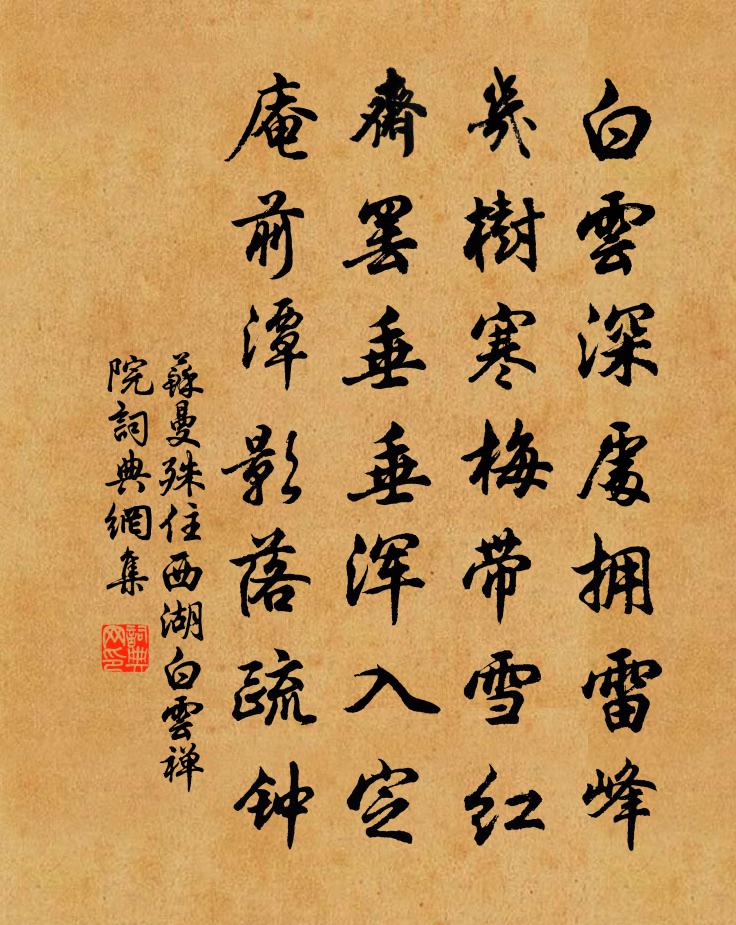 白雲深處拥雷峰
幾樹寒梅带雪红
齋罢垂垂浑入定
庵前潭影落疏钟
蘇曼殊住西湖白雲禅
院詞典網集
詞典
网印